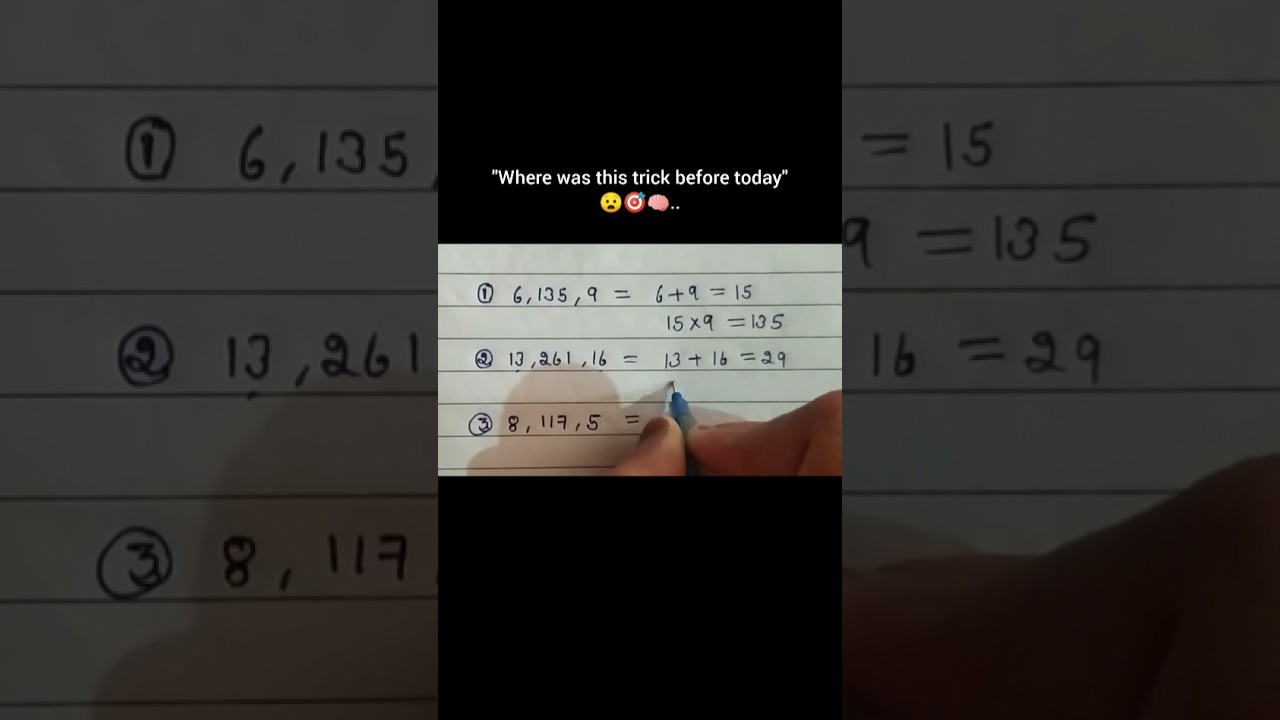 "Where was this trick before today"
😮🎯🧠..
① 6,135,9 = 6+9 = 15
15×9 = 135
② 13,261,16 = 13+16 = 29
③ 8,117,5 =